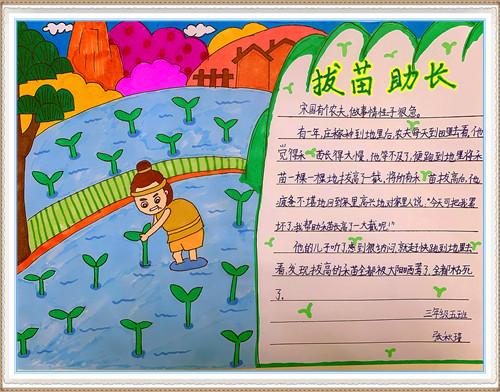 拔苗助长
宋国有个农夫,做事情性子很急。
有一年,庄稼种到地里后,农夫每天到田里去看,他
觉得禾苗长得太慢,他等不及了,便跑到地里将禾
苗一棵一棵地拔高了一截,将所有禾苗拔高后,他
疲备不堪地回到家里高兴地对家里人说,“今天可把我累
坏了,我帮助禾苗长高了一大截呢!”
他的儿子听了感到很纳闷,就赶快跑到地里去
看,发现拔高的禾苗全都被太阳晒蔫了,全都枯死
了。
三年级五班
张秋瑾